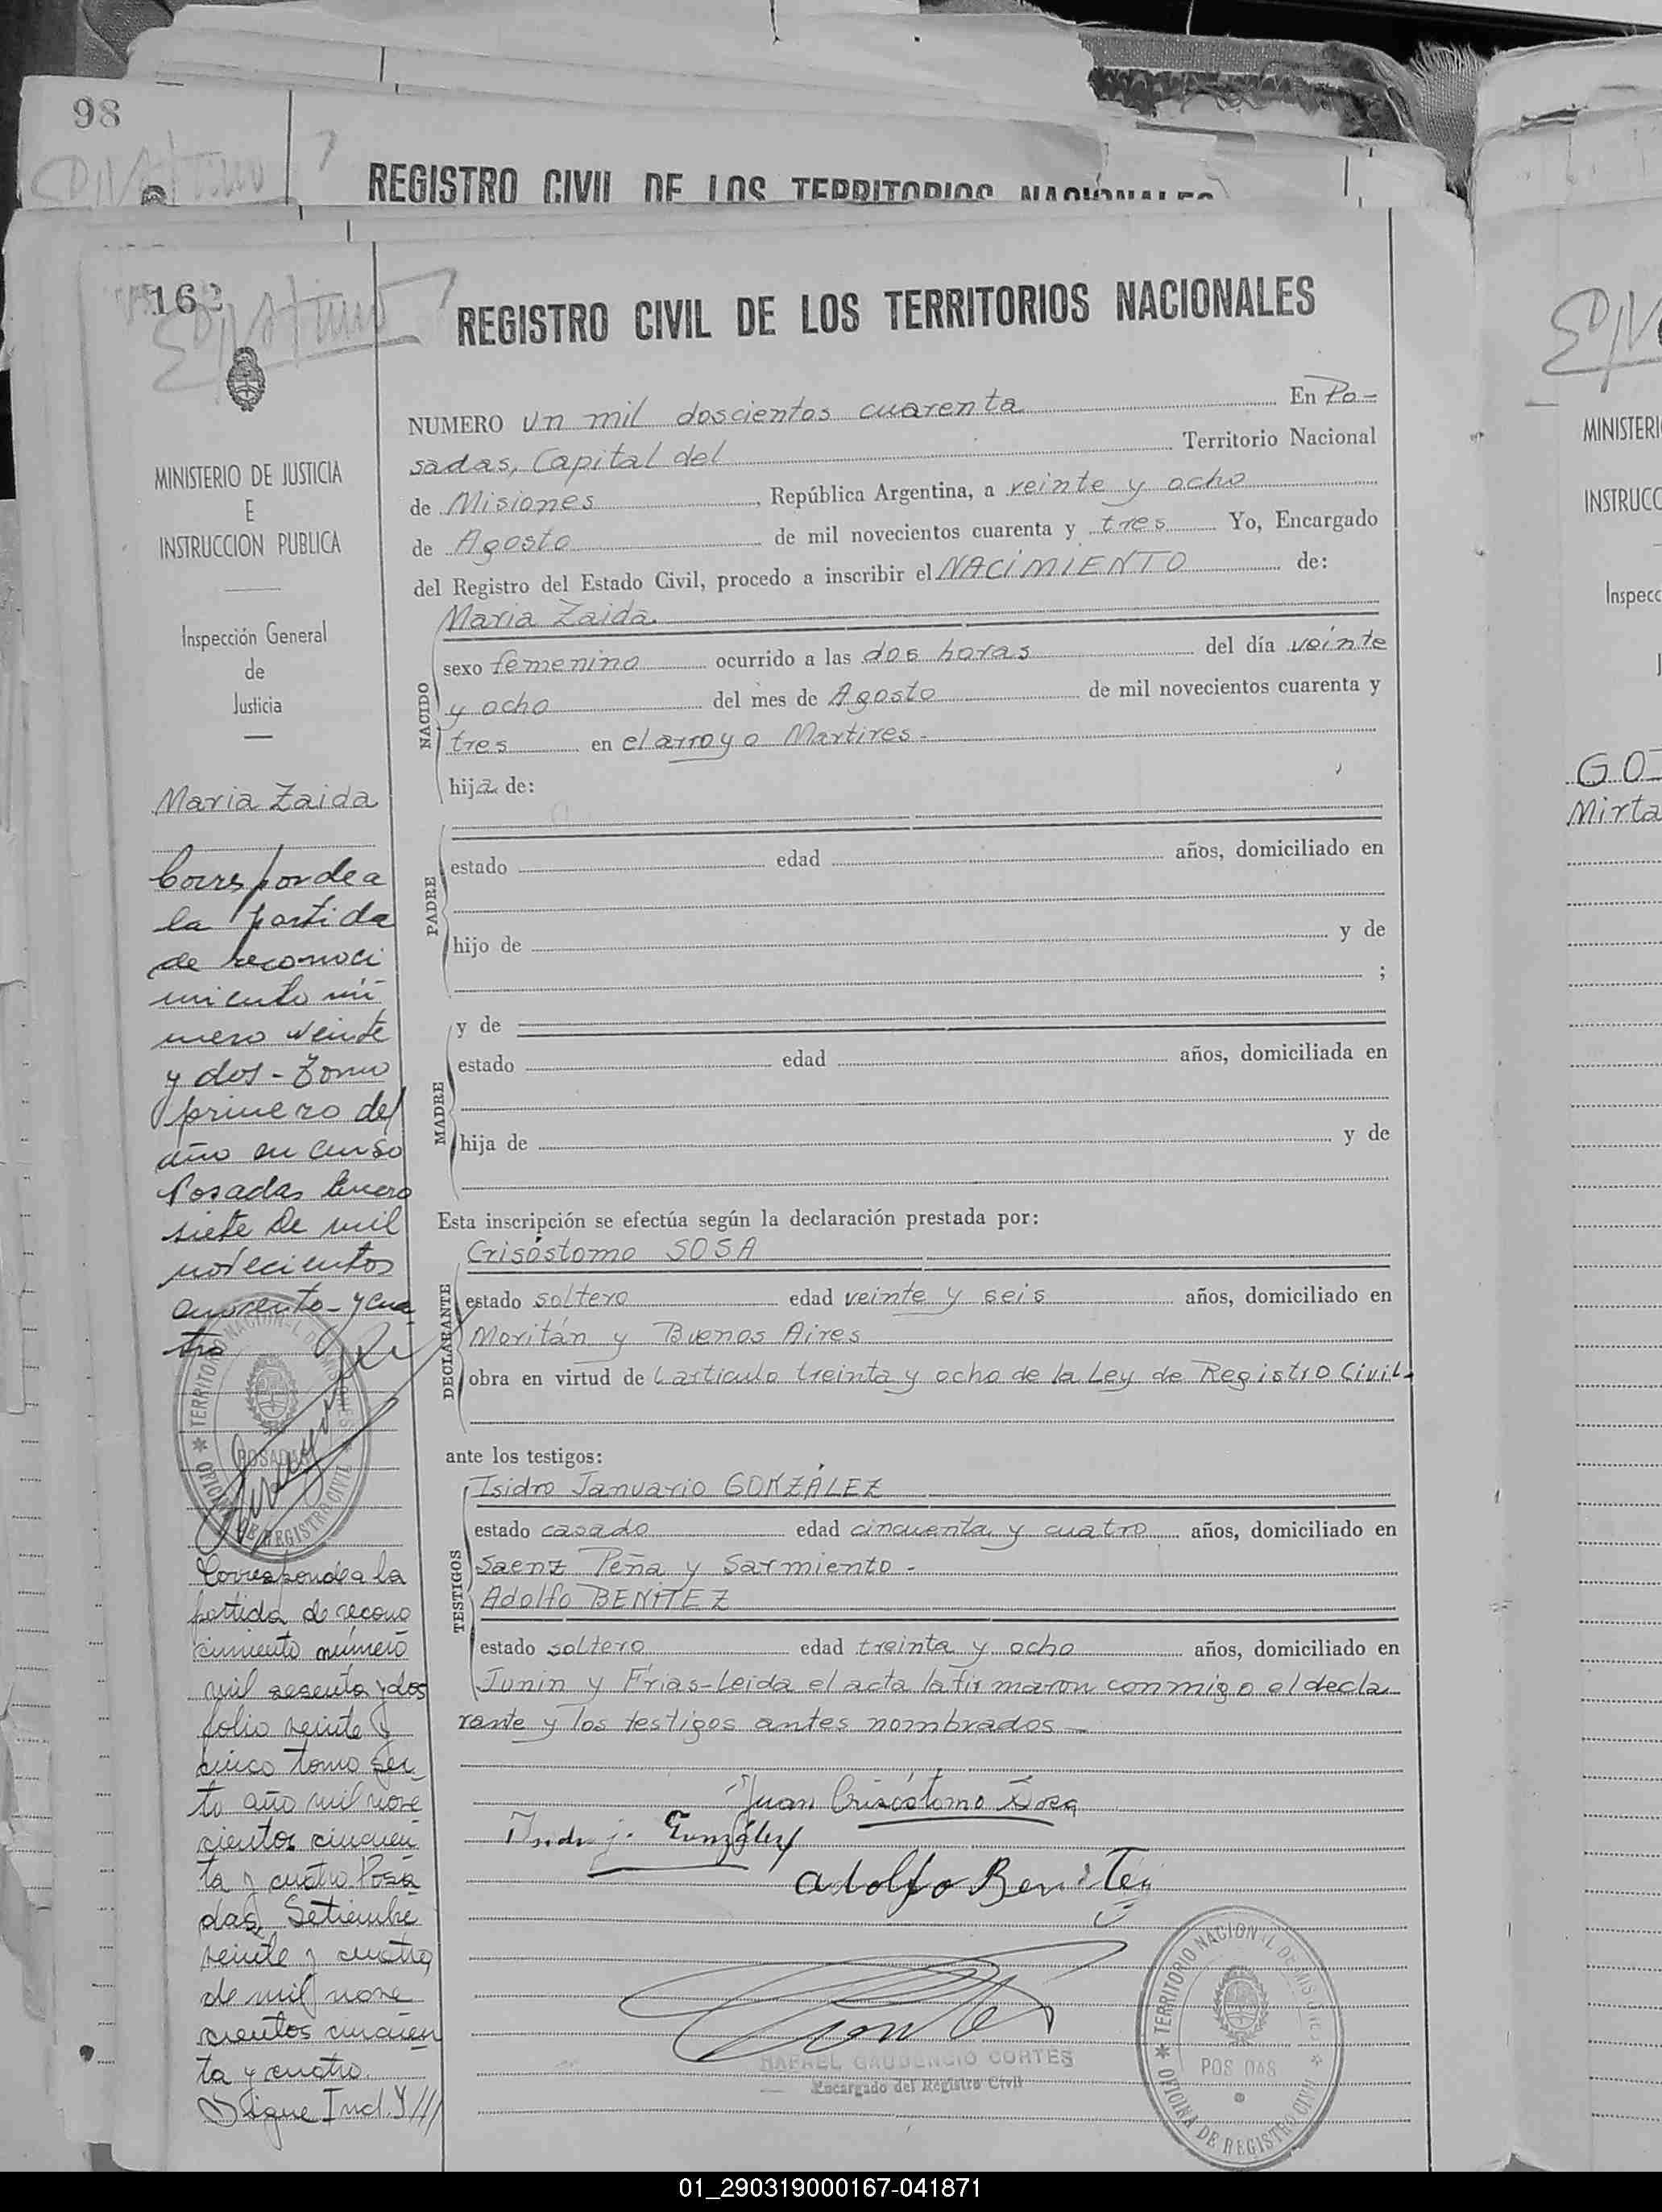 98
REGISTRO CIVIL DE LOS TERRITORIOS NACIONALES
162
REGISTRO CIVIL DE LOS TERRITORIOS NACIONALES
NUMERO un mil doscientos cuarenta En Po-
sadas, Capital del Territorio Nacional
de Misiones, República Argentina, a veinte y ocho
de Agosto de mil novecientos cuarenta y tres Yo, Encargado
del Registro del Estado Civil, procedo a inscribir el NACIMIENTO de:
Maria Zaida.
NACIDO
sexo femenino ocurrido a las dos horas del día veinte
y ocho del mes de Agosto de mil novecientos cuarenta y
tres en el arroyo Martires.-
hija de:
PADRE
estado edad años, domiciliado en
hijo de y de
;
y de
MADRE
estado edad años, domiciliada en
hija de y de
Esta inscripción se efectúa según la declaración prestada por:
Crisóstomo SOSA
DECLARANTE
estado soltero edad veinte y seis años, domiciliado en
Moritán y Buenos Aires
obra en virtud de l articulo treinta y ocho de la Ley de Registro Civil.
ante los testigos:
Isidro Januario GONZÁLEZ
TESTIGOS
estado casado edad cincuenta y cuatro años, domiciliado en
Saenz Peña y Sarmiento.-
Adolfo BENITEZ
estado soltero edad treinta y ocho años, domiciliado en
Junin y Frias-Leida el acta la firmaron conmigo el decla
rante y los testigos antes nombrados.-
Juan Crisóstomo Sosa
Isidro J. González
Adolfo Benitez
RAFAEL GAUDENCIO CORTES
Encargado del Registro Civil
TERRITORIO NACIONAL DE MISIONES
POSADAS
OFICINA DE REGISTRO CIVIL
MINISTERIO DE JUSTICIA
E
INSTRUCCION PUBLICA
Inspección General
de
Justicia
Maria Zaida
Corresponde a
la partida
de reconoci
miento nú
mero veinte
y dos - Tomo
primero del
año en curso
Posadas Enero
siete de mil
novecientos
cuarenta y cua
tro
TERRITORIO NACIONAL DE MISIONES
POSADAS
OFICINA DE REGISTRO CIVIL
Corresponde a la
partida de recono
cimiento número
mil sesenta y dos
folio veinte y
cinco tomo sex
to año mil nove
cientos cincuen
ta y cuatro Posa
das, Setiembre
veinte y cuatro
de mil nove
cientos cincuen
ta y cuatro.
Sigue Ind.
MINISTERI
INSTRUCC
Inspecc
Mirta
01_290319000167-041871